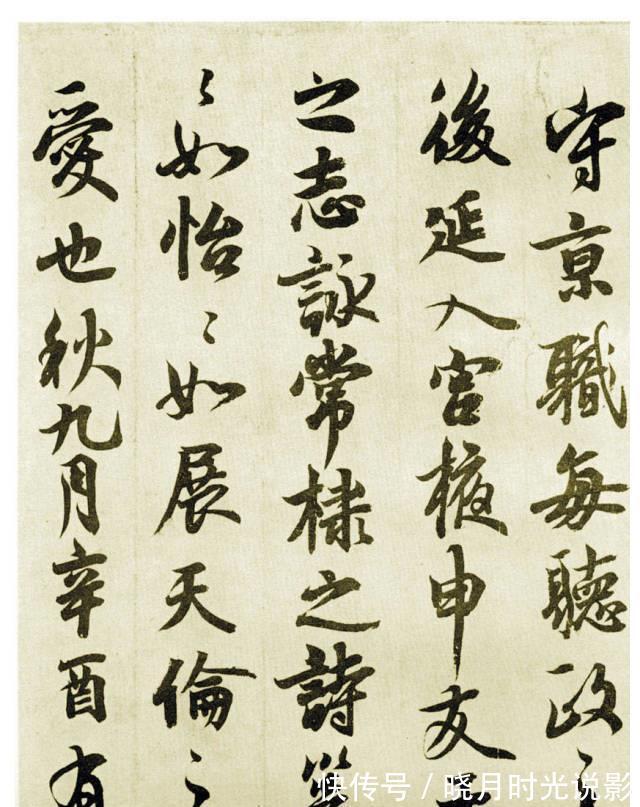 守京職每聽政
後延入宮掖申友
之志詠常棣之詩
〻如怡〻如展天倫
愛也秋九月辛酉有
快传号 / 晓月时光说影